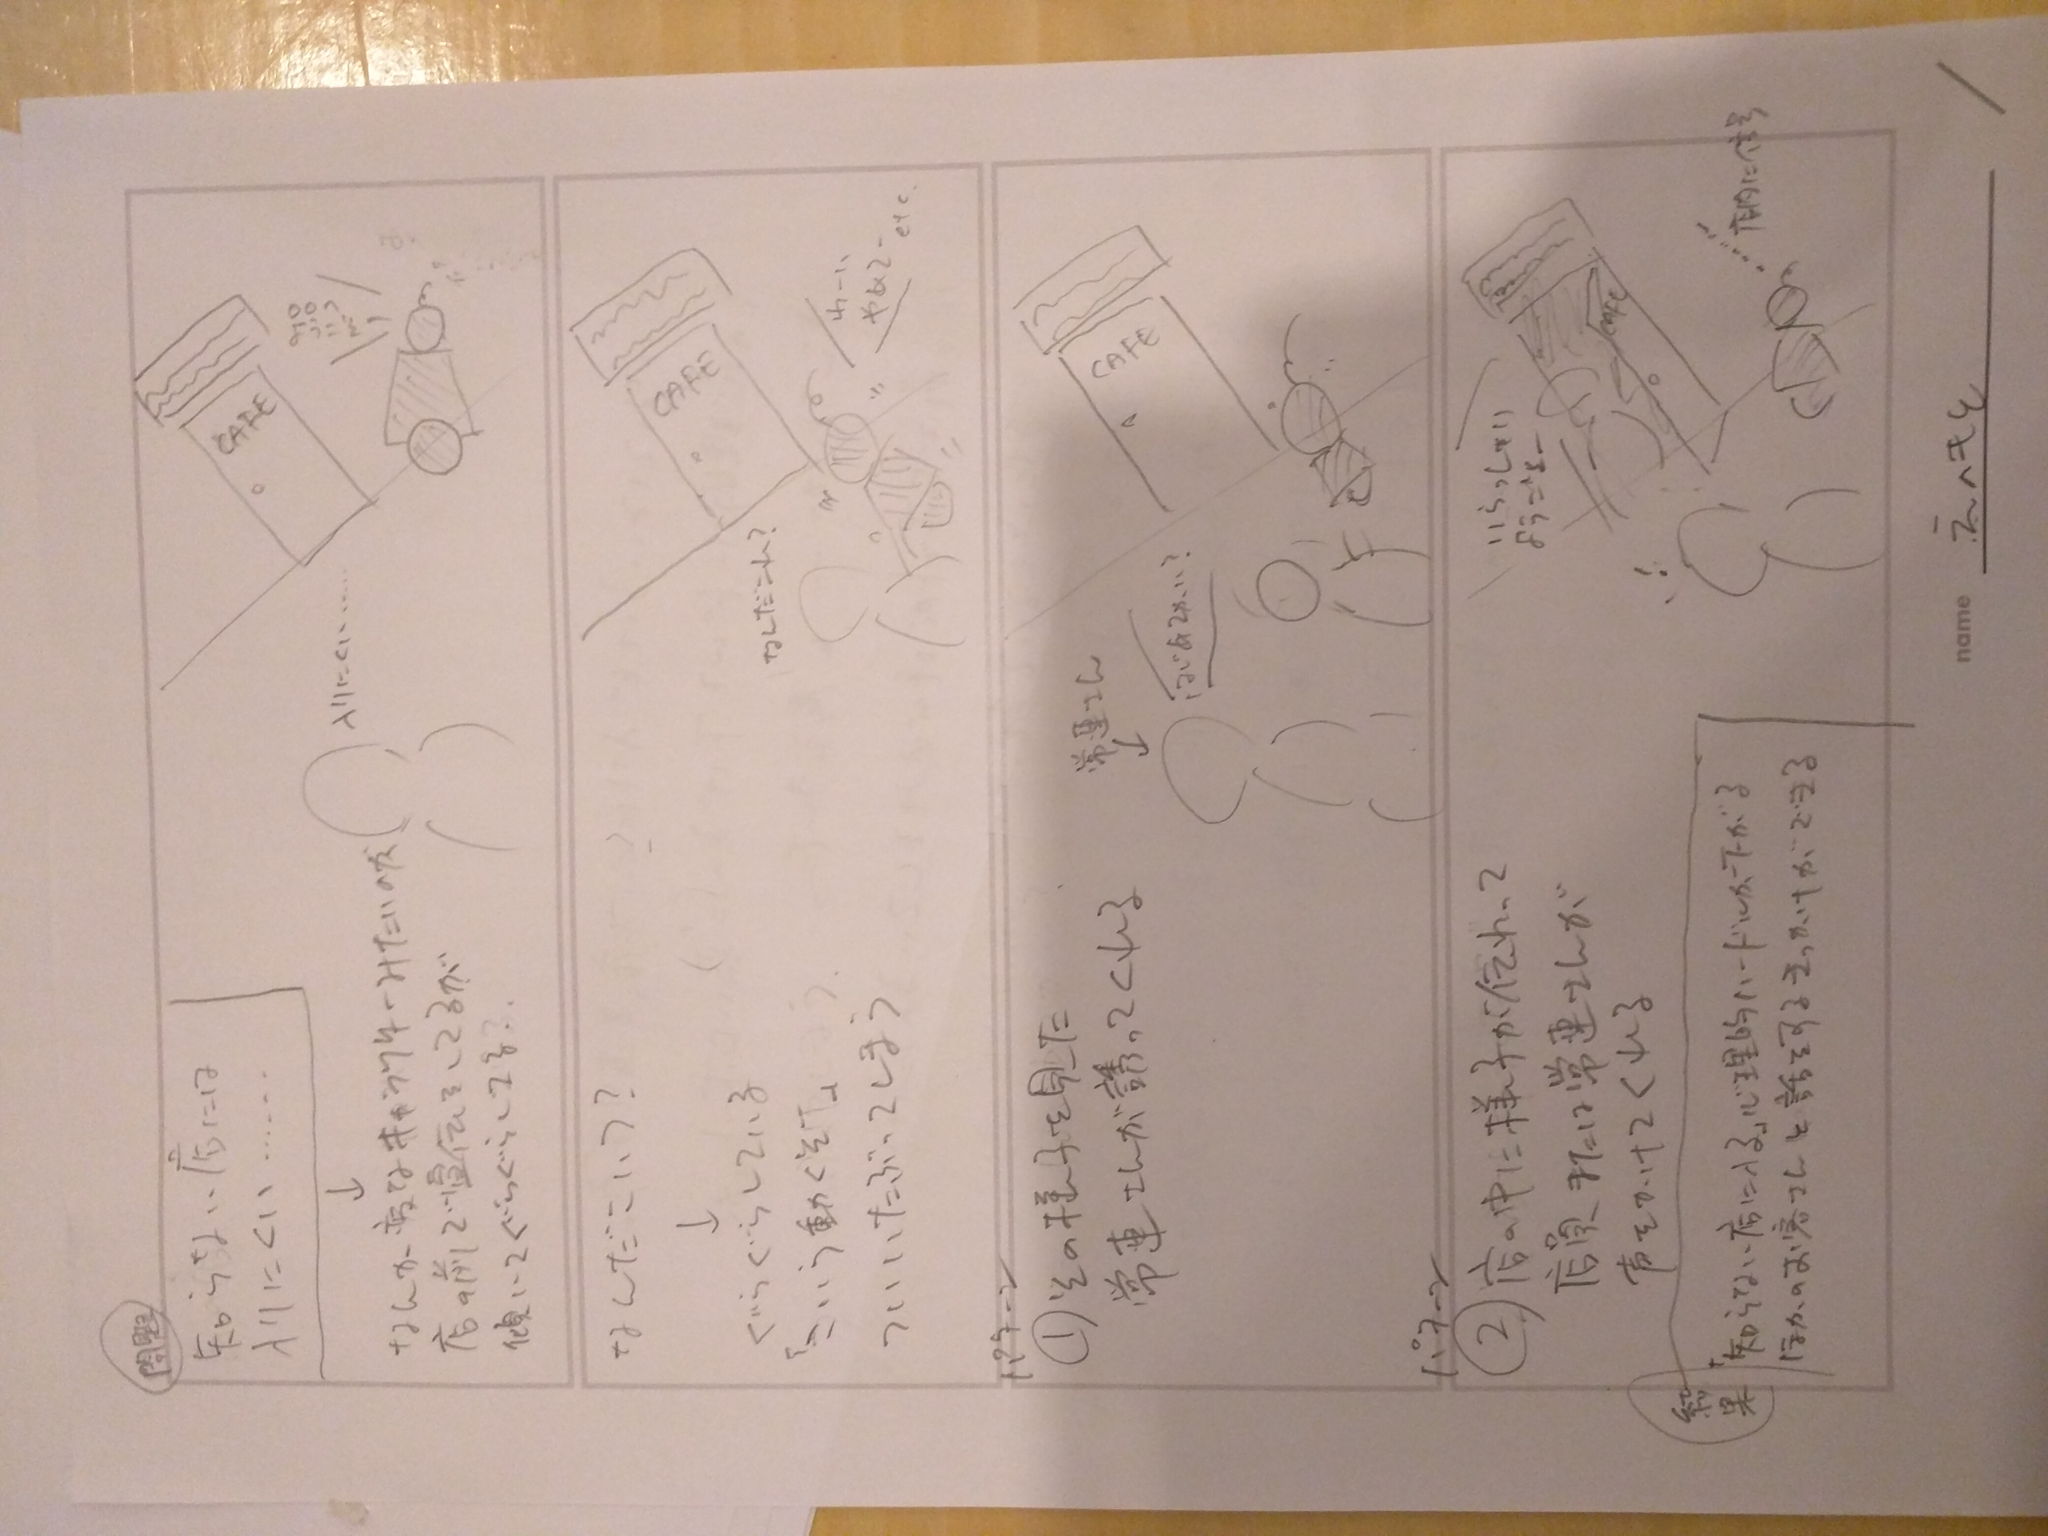 問題
知らない店には
入りにくい……
↓
なんか変な井村うりみたいのが
店の前で宣伝をしてるが
傾いてぐらぐらしてる?
入りにくい……
CAFE
なんだこいつ?
↓
ぐらぐらしている
「こいつ動くぞ」
ついいたぶってしまう
なんだこれ?
CAFE
やーい
etc.
パターン
①その様子を見た
常連さんが誘ってくれる
常連さん
↓
はじめてかい?
CAFE
パターン
②店の中に様子が伝わって
店員、または常連さんが
声をかけてくれる
いらっしゃい
ようこそー
CAFE
店内に信号
結果
「知らない店に入る」心理的ハードルが下がる
ほかのお客さんと話をするきっかけができる
name